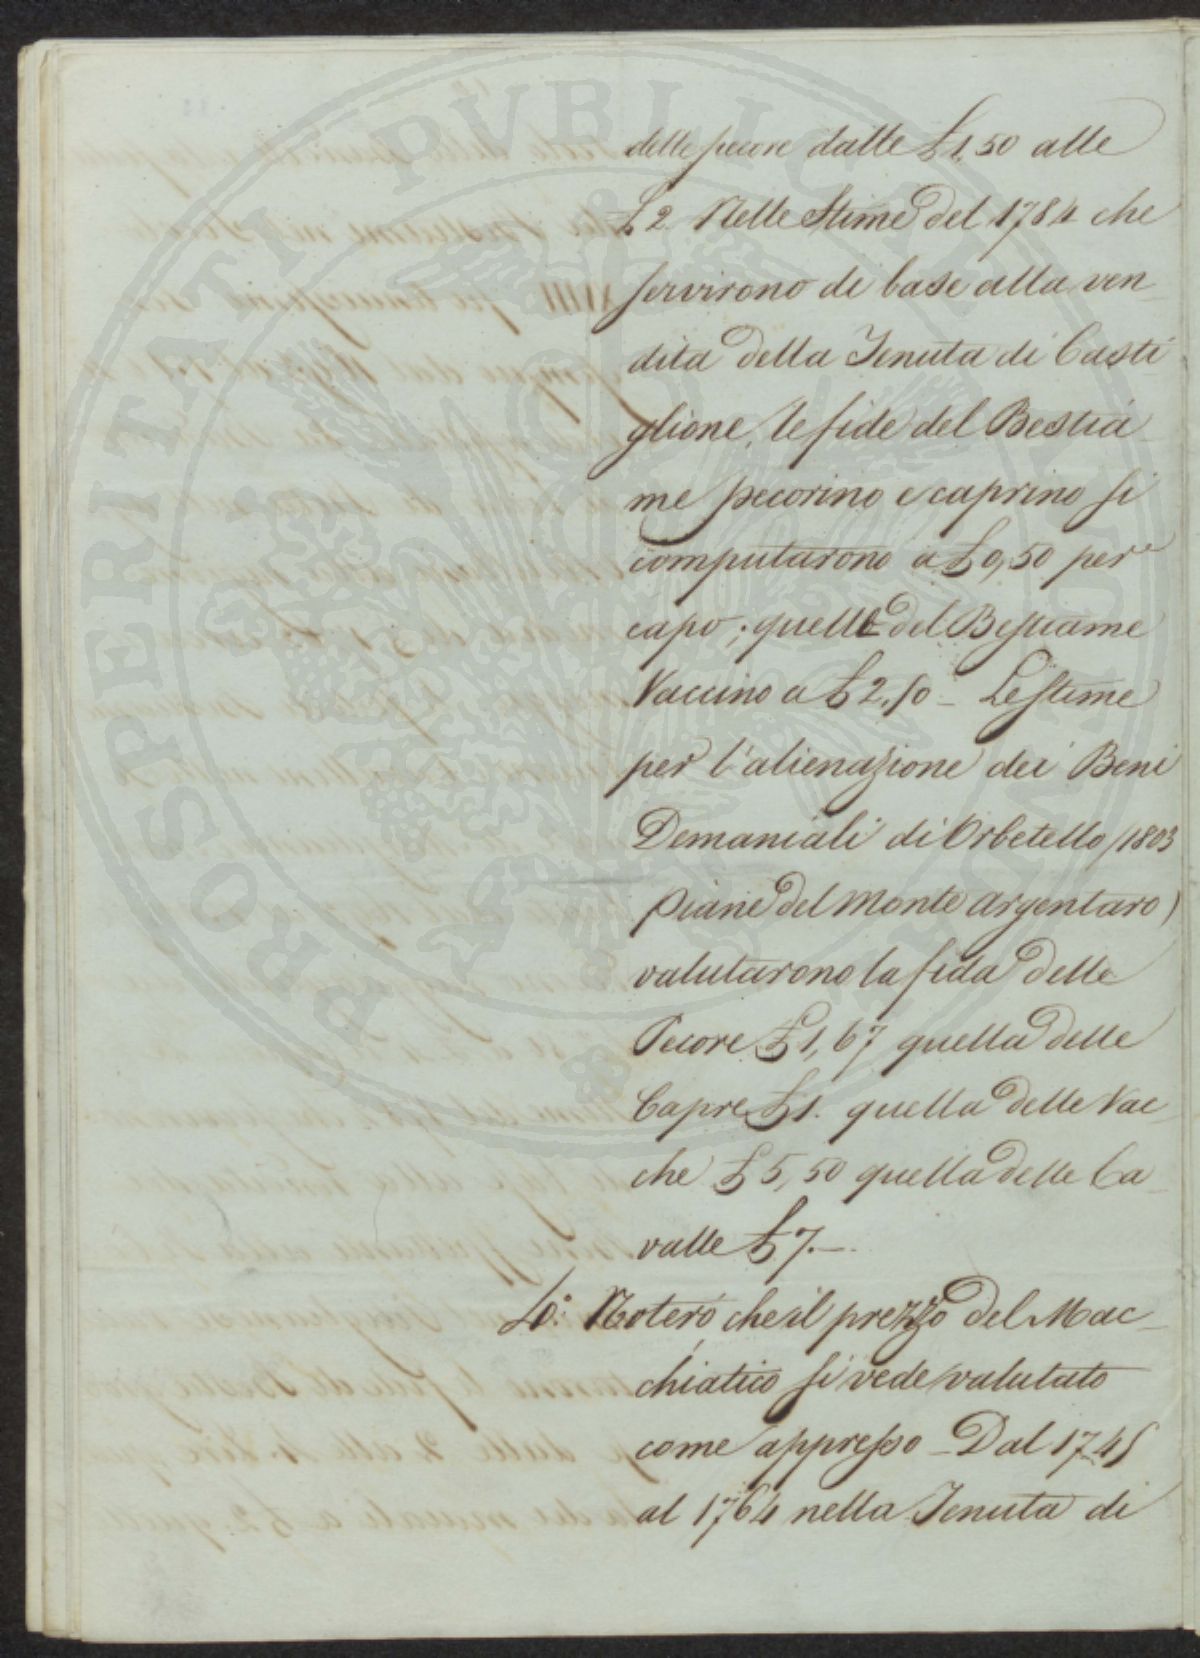 delle pecore dalle £ 1,50 alle
£ 2. Nelle Stime del 1784 che
servirono di base alla ven_
dita della Tenuta di Casti_
glione, le fide del Bestia_
me pecorino e caprino si
computarono a £ 0,50 per
capo; quelle del Bestiame
Vaccino a £ 2.50 _ Le Stime
per l'alienazione dei Beni
Demaniali di Orbetello (1803
Piane del Monte Argentaro)
valutarono la fida delle
Pecore £ 1,67 quella delle
Capre £ 1. quella delle Vac_
che £ 5,50 quella delle Ca_
valle £ 7._
Noterò che il prezzo del Mac_
chiatico si vede valutato
come appresso _ Dal 1745
al 1764 nella Tenuta di
PROSPERITATI PVBLICAE